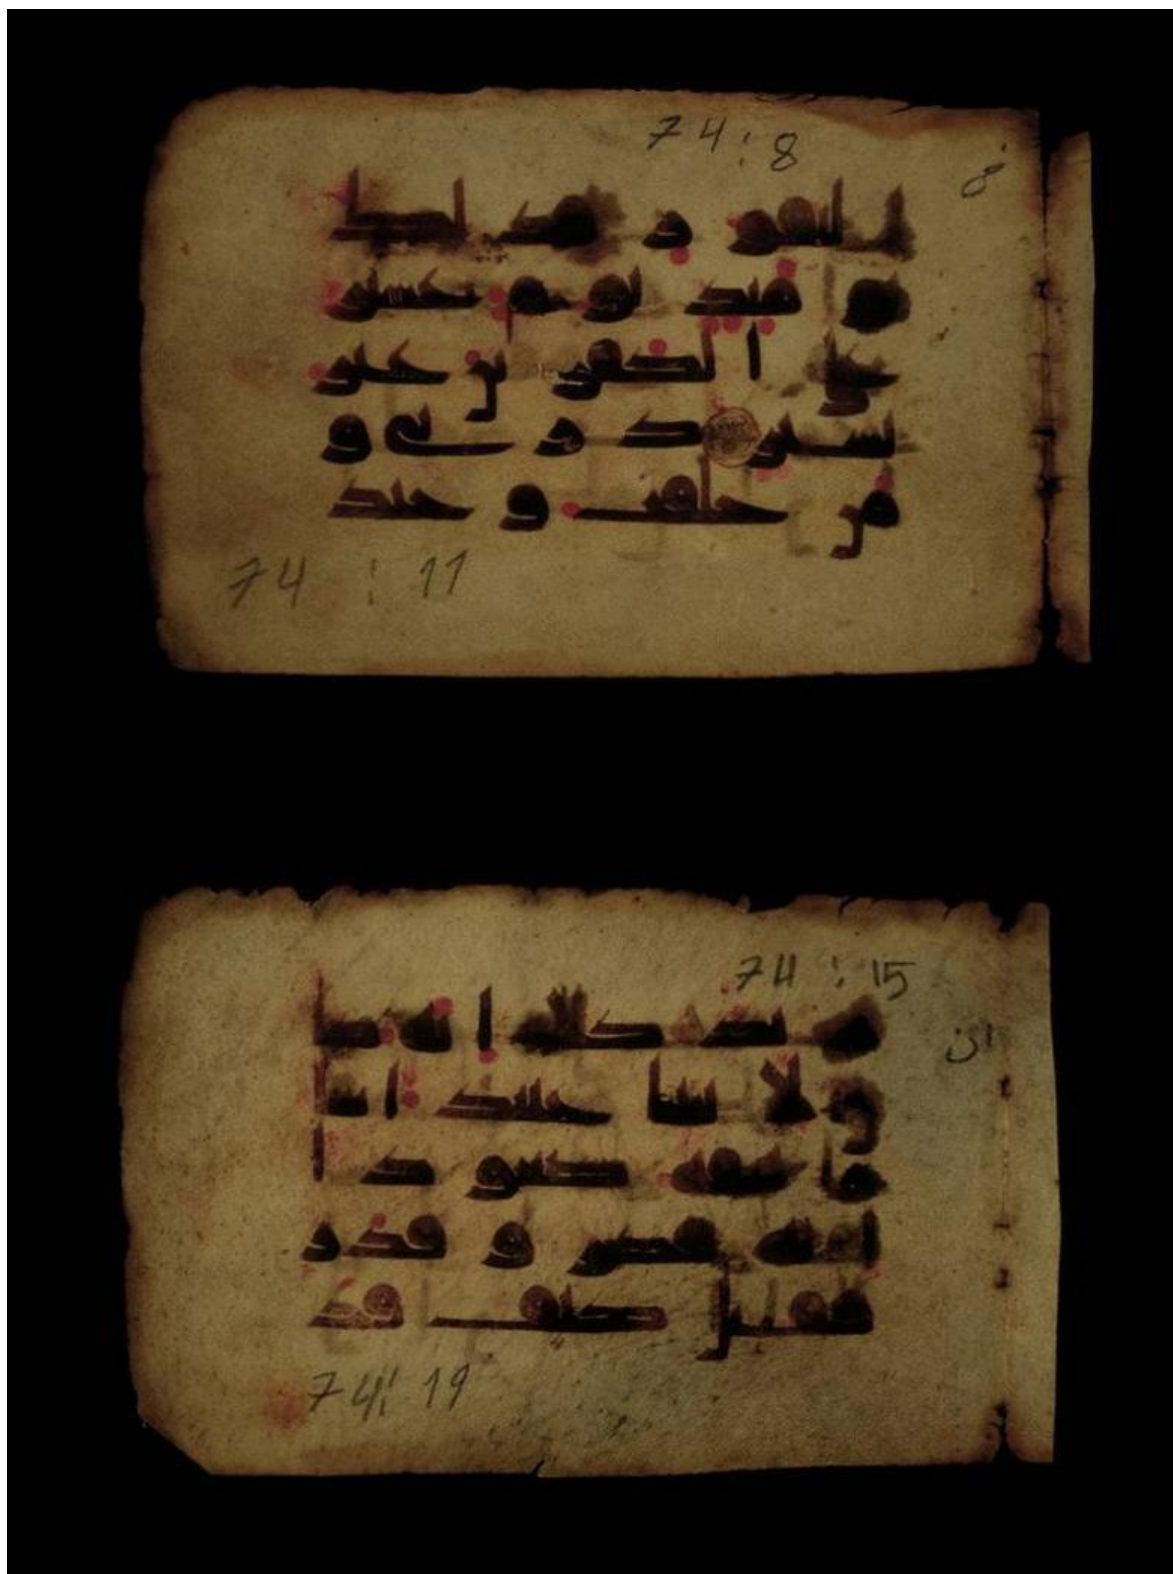 74:8
في
النقو ر فذلك
يو مئذ يو م عسير
على ا لكفر ين غير
يسير ذ ر ني و
من خلقت و حيد
74 : 11
74 : 15
ان
يد كلا ا نه كا
ن لا يتنا عنيد ا سا
ر هقه صعو د ا
انه فكر و قد ر
فقتل كيف قد
74: 19